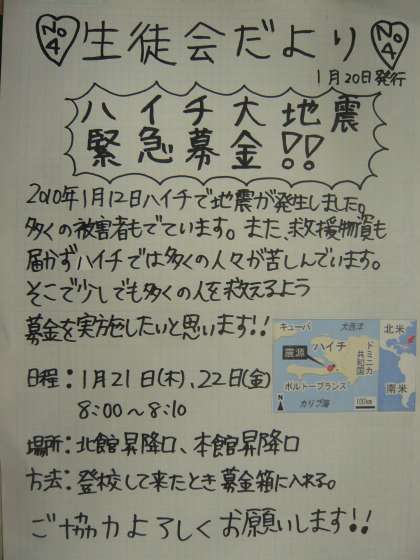 No 4 生徒会だより No 4
1月20日発行
ハイチ大地震
緊急募金!!
2010年1月12日ハイチで地震が発生しました。
多くの被害者もでています。また、救援物資も
届かずハイチでは多くの人々が苦しんでいます。
そこで少しでも多くの人を救えるよう
募金を実施したいと思います!!
キューバ 大西洋
ハイチ
ドミニカ共和国
震源
ポルトープランス
カリブ海
N
100km
北米
南米
日程:1月21日(木)、22日(金)
8:00〜8:10
場所:北館昇降口、本館昇降口
方法:登校して来たとき募金箱に入れる。
ご協力よろしくお願いします!!